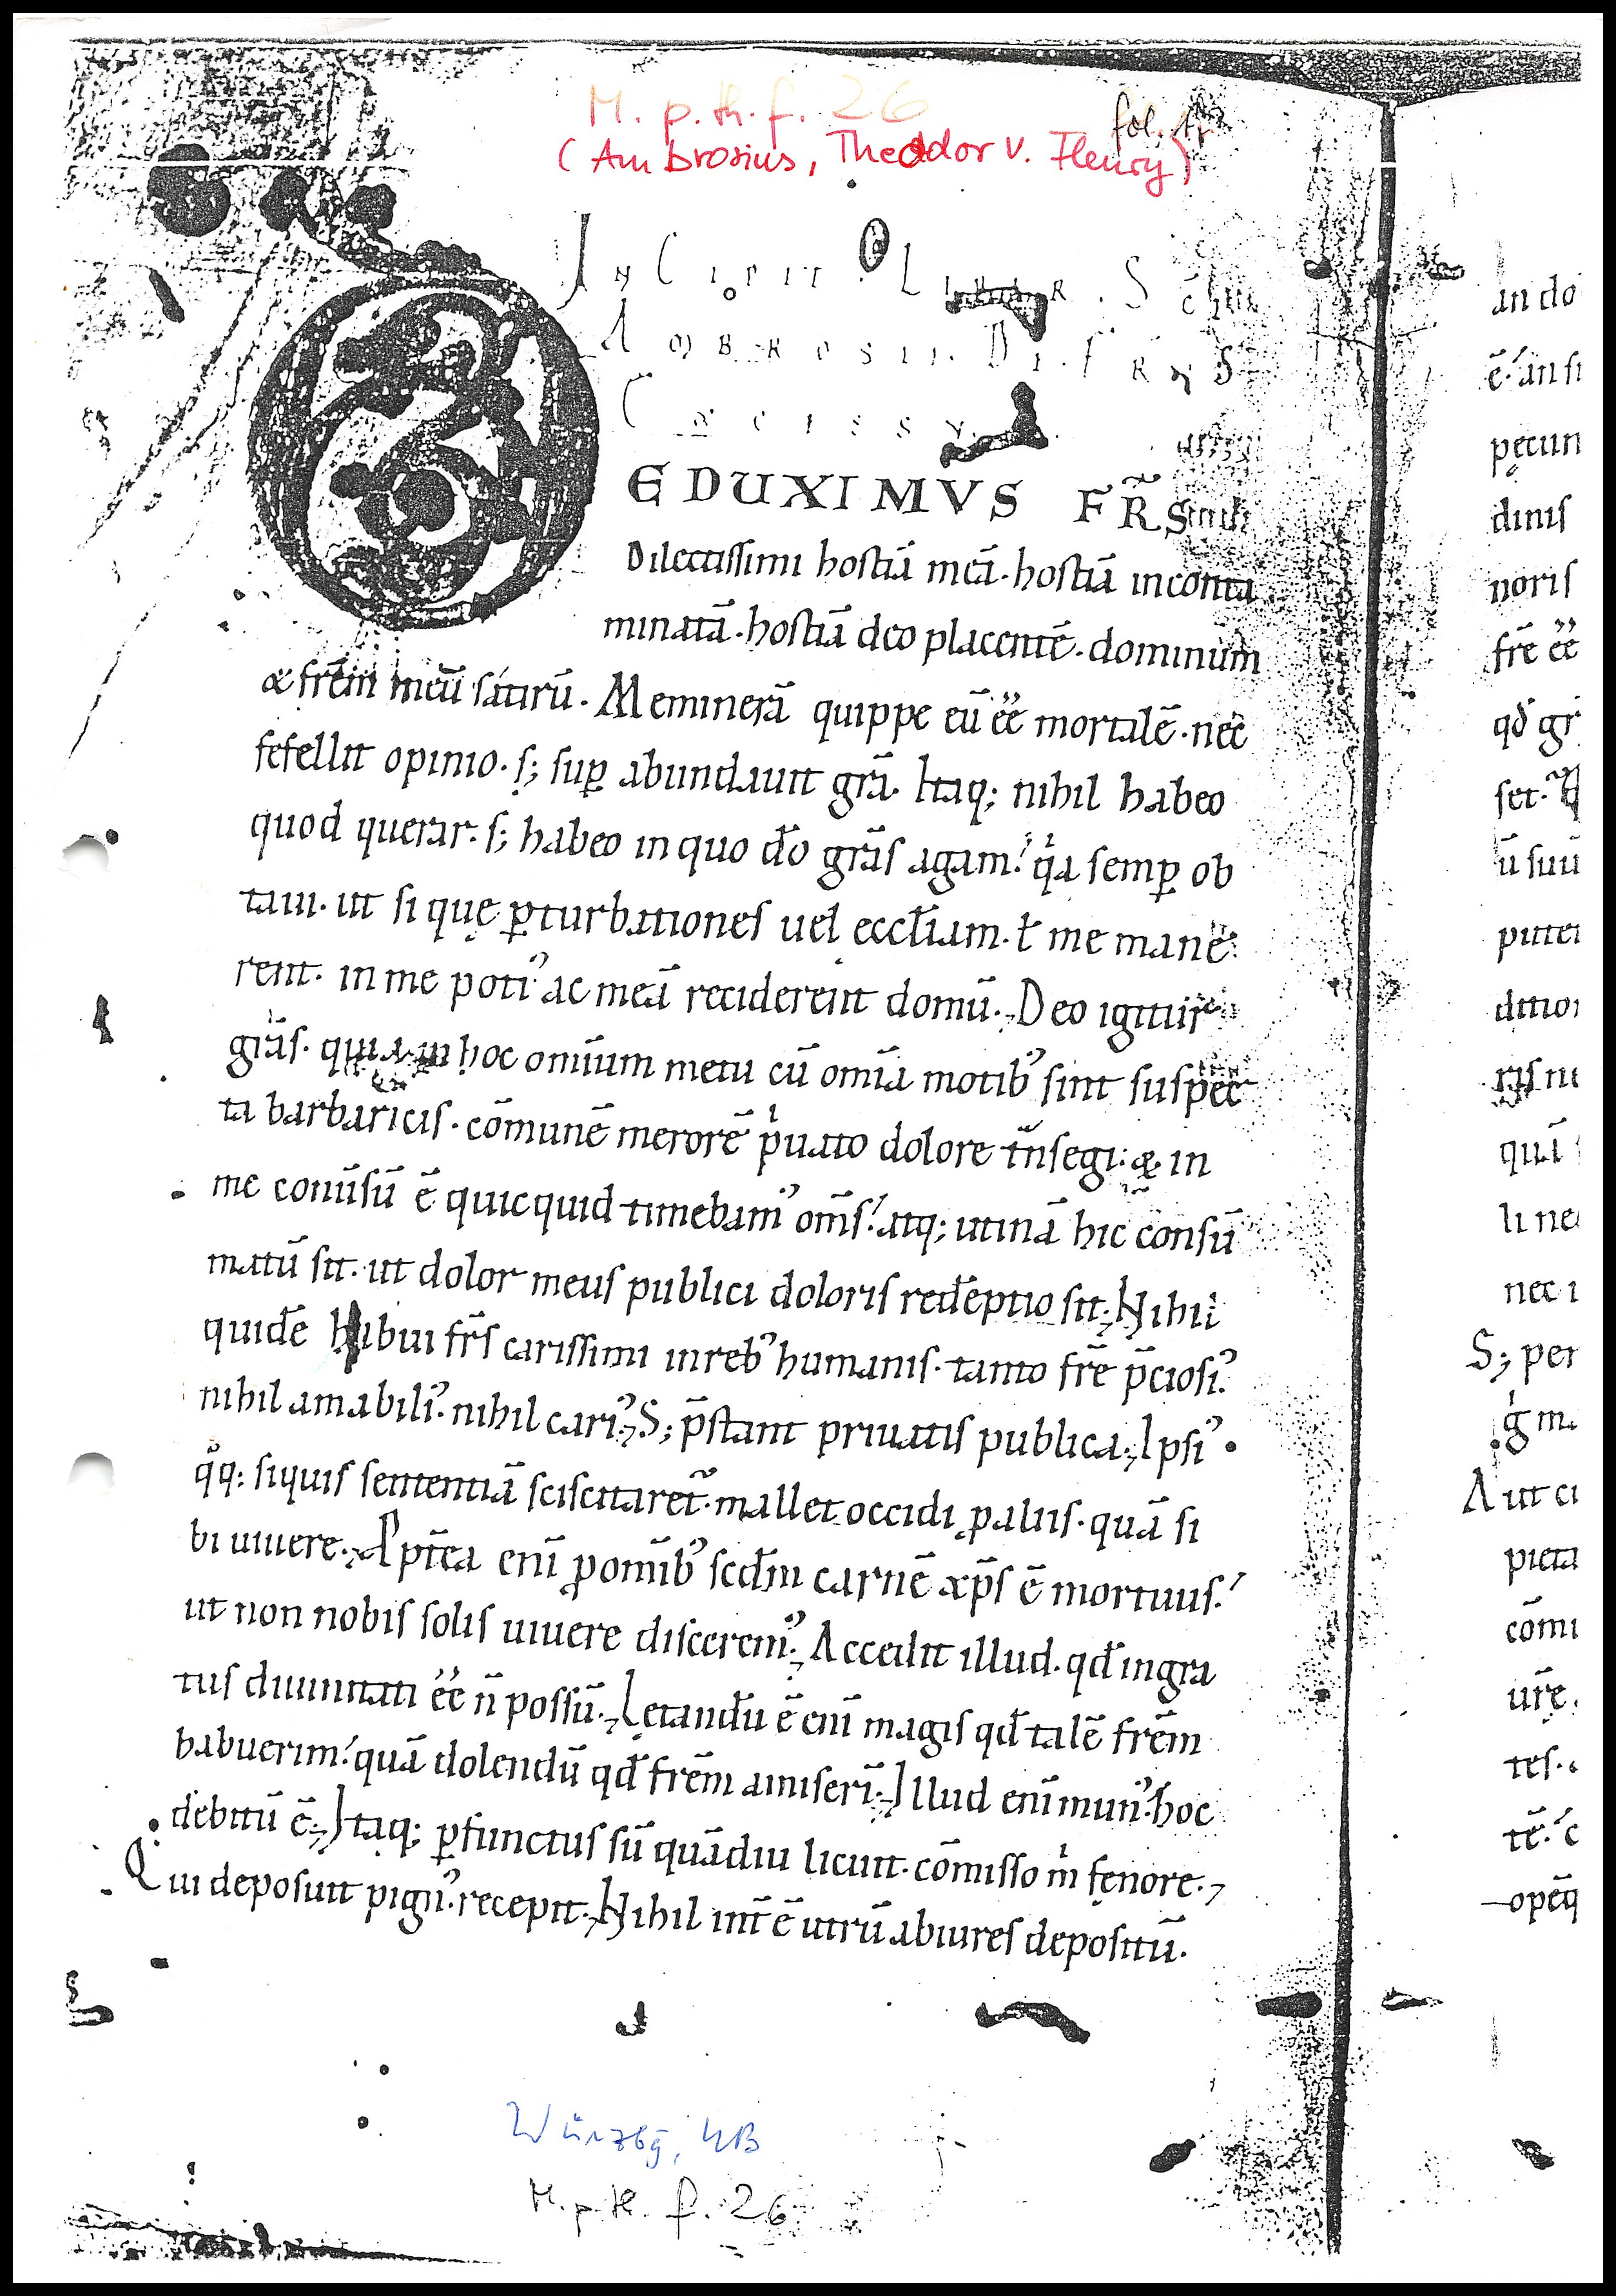 M. p. th. f. 26
fol. 1r
(Ambrosius, Theodor v. Fleury)
INCIPIT LIBER . S C̄I
AMBROSII. DE. FR̄IS
EDUXIMVS FR̄S
Dilectissimi hostiā meā. hostiā inconta
minatā. hostiā deo placentē. dominum
& frēm meū satirū. Meminerā quippe eū ēē mortalē. nec
fefellit opinio. s; suꝑ abundauit gr̄a. Itaq; nihil habeo
quod querar. s; habeo in quo dō gr̄as agam. qͥa semꝑ ob
taui. ut si quę ꝑturbationes uel eccl̄iam. ł me mane
rent. in me potiꝰ ac meā reciderent domū. Deo igitur
gr̄as. quia in hoc omīum metu cū omīa motibꝰ sint suspec
ta barbaricis. cōmunē merorē pͥuato dolore tn̄segi. & in
me conūsū ē quicquid timebamꝰ om̄s. atq; utinā hic consū
matū sit. ut dolor meus publici doloris redēptio sit. Nihil
quidē habui fr̄s carissimi in rebꝰ humanis. tanto fr̄e p̄ciosiꝰ
nihil amabiliꝰ. nihil cariꝰ. S; p̄stant priuatis publica. Ipsiꝰ
qͦq; siquis sententiā sciscitaret᷑. mallet occidi ꝓ aliis. quā si
bi uiuere. Apr̄ea enī ꝓ omībꝰ scd̄m carnē xp̄s ē mortuus.
ut non nobis solis uiuere disceremꝰ. Accedit illud. qđ ingra
tus diuinitati ēē n̄ possū. Letandū ē enī magis qđ talē frēm
habuerim. quā dolendū qđ frēm amiserī. Illud enī munꝰ. hoc
debitū ē. Itaq; ꝑfunctus sū quādiu licuit. cōmisso mͥ fenore.
Qui deposuit pignꝰ. recepit. Nihil int̄ ē utrū abiures depositū.
an do
ē. an si
pecun
dinis
noris
fr̄e ēē
qđ gr
set.
ū suū
putei
ditioı
ris
quā
li ne
nec i
S; per
gͥ m
Aut ci
pieta
cōmi
ur̄e.
tes.
tē. c
opēq
Würzbg, UB
M. p. th. f. 26